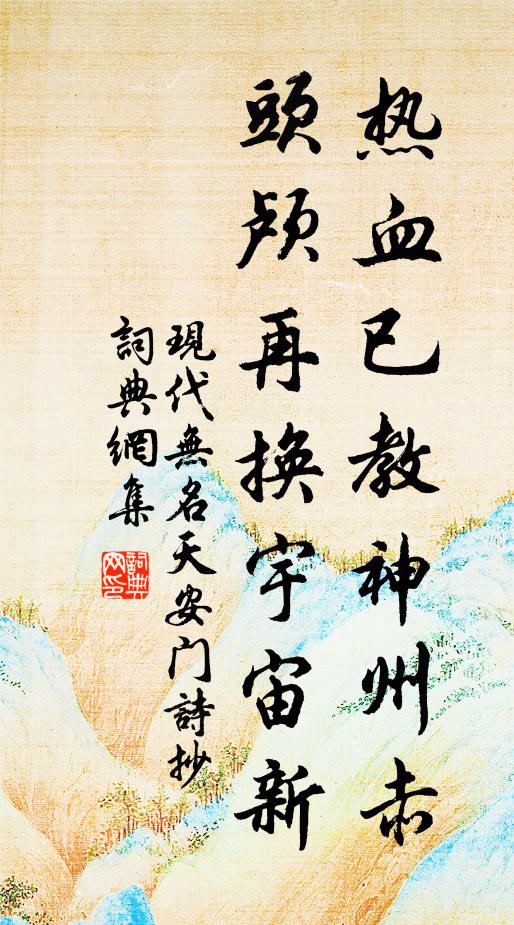 热血已教神州赤
頭颅再换宇宙新
現代無名天安门詩抄
詞典網集
詞典网印